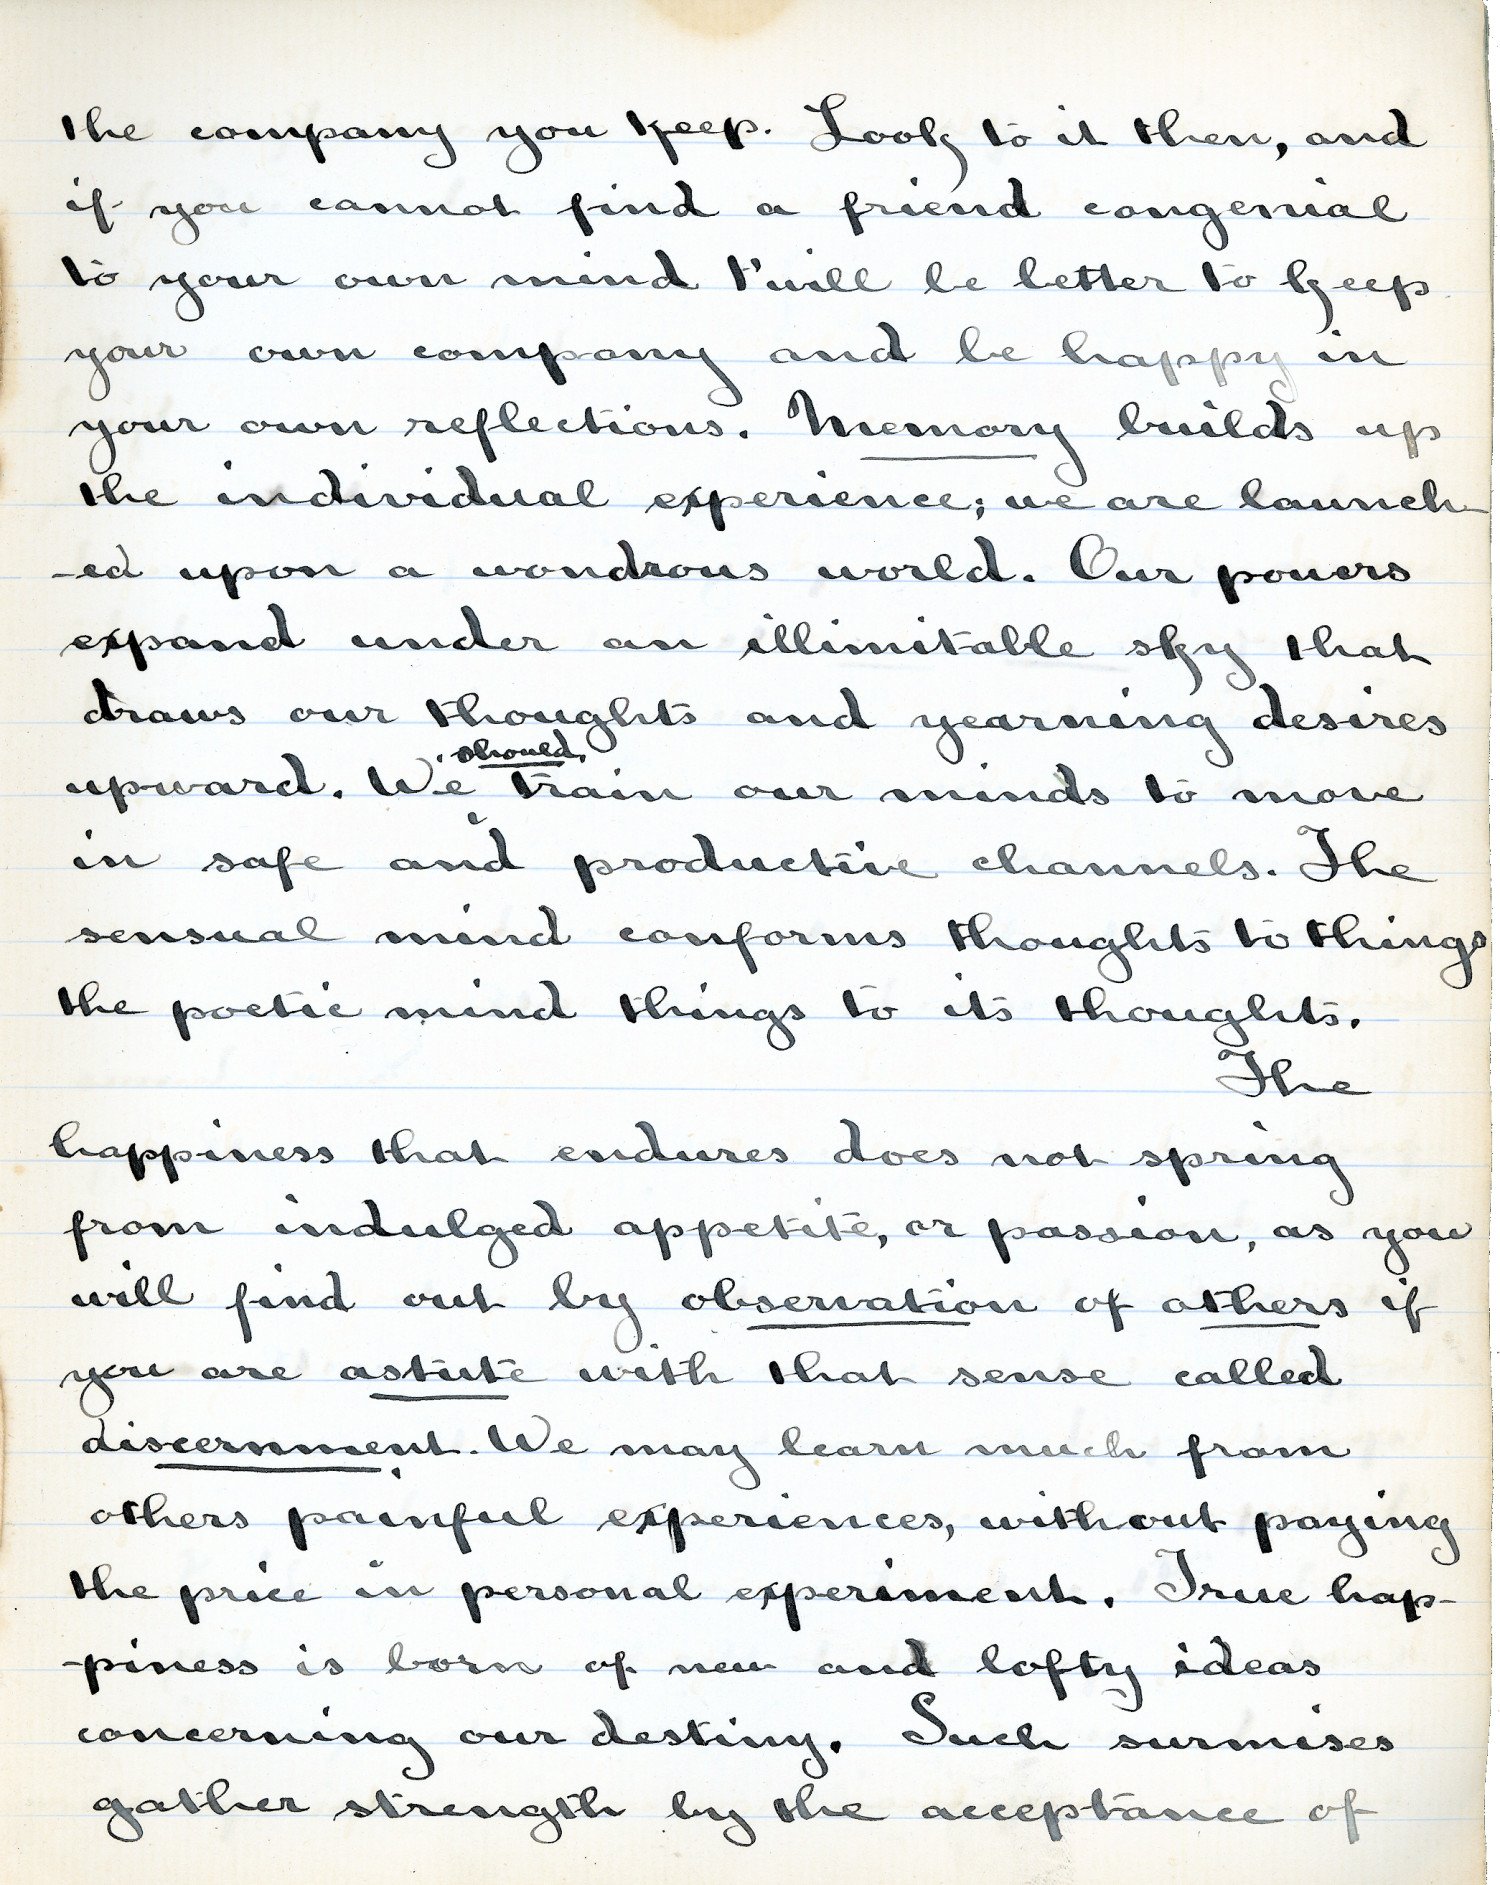 the company you keep. Look to it then, and
if you cannot find a friend congenial
to your own mind t'will be better to keep
your own company and be happy in
your own reflections. Memory builds up
the individual experience; we are launch-
-ed upon a wondrous world. Our powers
expand under an illimitable sky that
draws our thoughts and yearning desires
upward. We should train our minds to move
in safe and productive channels. The
sensual mind conforms thoughts to things
the poetic mind things to its thoughts.
The
happiness that endures does not spring
from indulged appetite, or passion, as you
will find out by observation of others if
you are astute with that sense called
discernment. We may learn much from
others painful experiences, without paying
the price in personal experiment. True hap-
-piness is born of new and lofty ideas
concerning our destiny. Such surmises
gather strength by the acceptance of